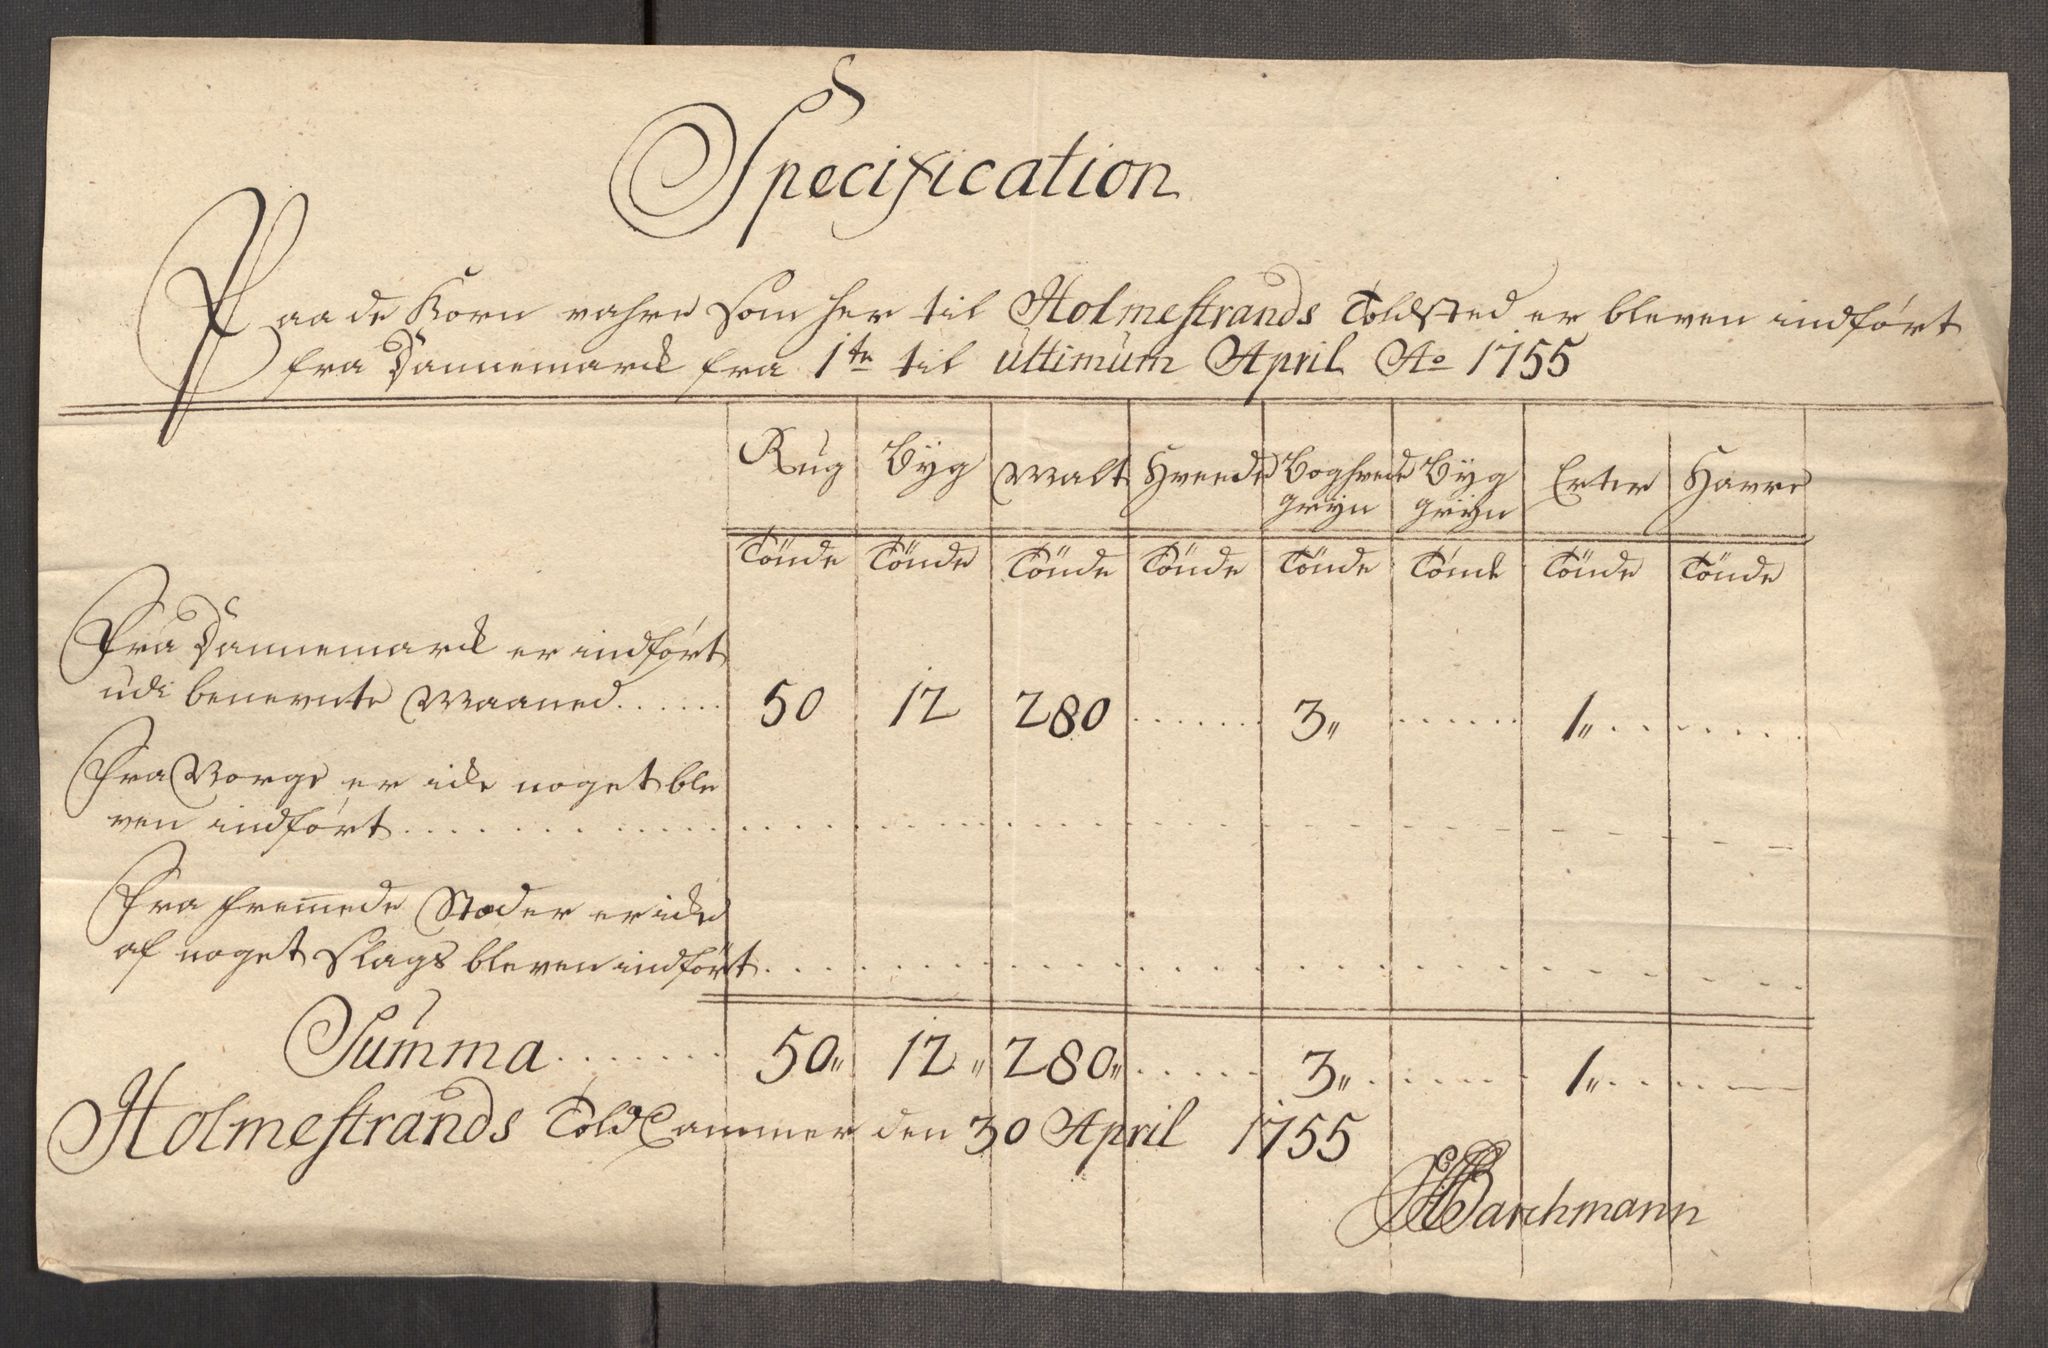 Specification
Paa de Korn vahre som her til Holmestrands Toldsted er bleven indført
fra Dannemarck fra 1te til ultimum April Ao 1755
Rug Byg Malt Hvede Boghvede Byg Erter Havre
gryn gryn
Tönde Tönde Tönde Tönde Tönde Tönde Tönde Tönde
Fra Dannemarck er indført
udi benevnte Maaned ...... 50 12 280 ...... 3„ ...... 1„ ......
Fra Norge er icke noget ble
ven indført ......
Fra fremmede Stæder er icke
af noget slags bleven indført ......
Summa ...... 50„ 12„ 280„ ...... 3„ ...... 1„ ......
Holmestrands Told Cammer den 30 April 1755
Barchmann